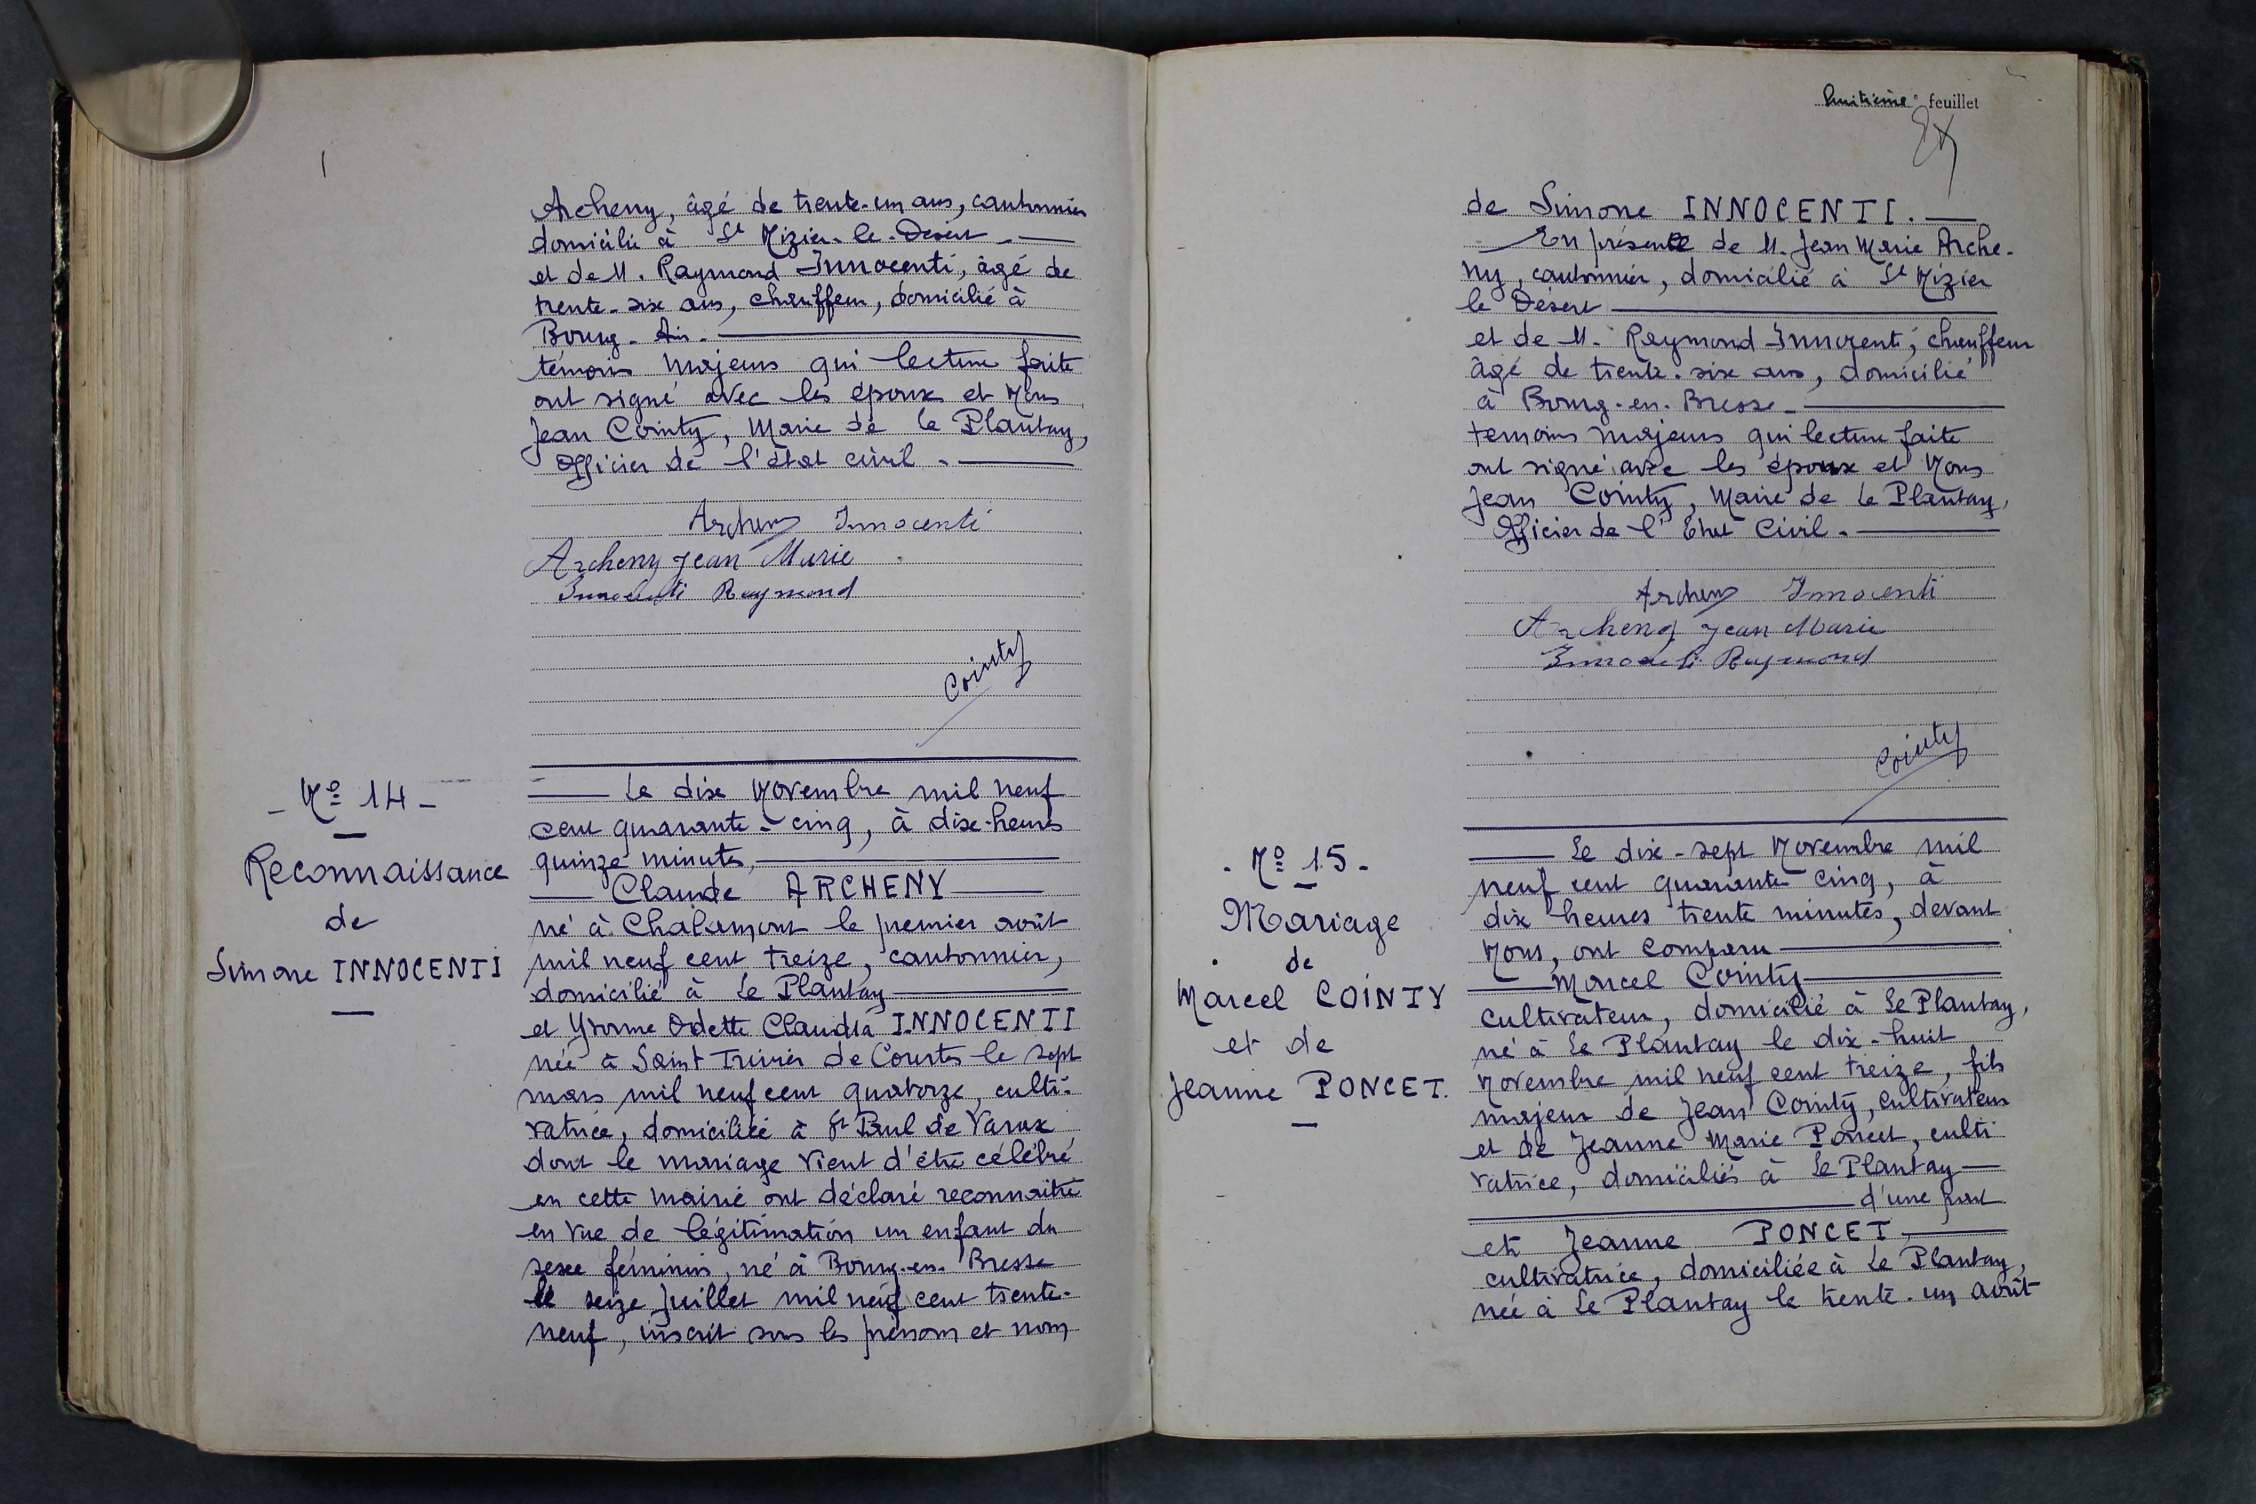 Archeny, âgé de trente-un ans, cantonnier
domicilié à St Nizier-le-Désert.
et de M. Raymond Innocenti, âgé de
trente-six ans, chauffeur, domicilié à
Bourg-Ain.
témoins majeurs qui lecture faite
ont signé avec les époux et Nous
Jean Cointy, Maire de Le Plantay,
Officier de l'état civil.
Archeny Innocenti
Archeny Jean Marie
Innocenti Raymond
Cointy
- No 14 -
Reconnaissance
de
Simone INNOCENTI
Le dix Novembre mil neuf
cent quarante-cinq, à dix-heures
quinze minutes,
Claude ARCHENY
né à Chalamont le premier août
mil neuf cent treize, cantonnier,
domicilié à Le Plantay
et Yvonne Odette Claudia INNOCENTI
née à Saint Trivier de Courtes le sept
mars mil neuf cent quatorze, culti-
vatrice, domiciliée à St Paul de Varax
dont le mariage vient d'être célébré
en cette mairie ont déclaré reconnaître
en vue de légitimation un enfant du
sexe féminin, né à Bourg-en-Bresse
le seize Juillet mil neuf cent trente-
neuf, inscrit sous les prénom et nom
huitième feuillet
de Simone INNOCENTI.
En présence de M. Jean Marie Arche-
ny, cantonnier, domicilié à St Nizier
le Désert
et de M. Raymond Innocenti, chauffeur
âgé de trente-six ans, domicilié
à Bourg-en-Bresse
temoins majeurs qui lecture faite
ont signé avec les époux et Nous
Jean Cointy, Maire de Le Plantay,
Officier de l'Etat Civil.
Archeny Innocenti
Archeny Jean Marie
Innocenti Raymond
Cointy
- No 15 -
Mariage
de
Marcel COINTY
et de
Jeanne PONCET.
Le dix-sept Novembre mil
neuf cent quarante cinq, à
dix heures trente minutes, devant
Nous, ont comparu
Marcel Cointy
cultivateur, domicilié à Le Plantay,
né à Le Plantay le dix-huit
Novembre mil neuf cent treize, fils
majeur de Jean Cointy, cultivateur
et de Jeanne Marie Poncet, culti
vatrice, domiciliés à Le Plantay
d'une part
et Jeanne PONCET,
cultivatrice, domiciliée à Le Plantay,
née à Le Plantay le trente-un août